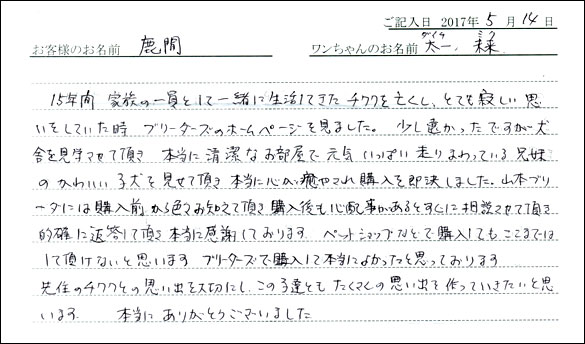 ご記入日 2017年5月14日
お客様のお名前 鹿間 ワンちゃんのお名前 太一、未来
15年間 家族の一員として一緒に生活してきた チワワを亡くし、とても寂しい思
いをしていた時 ブリーダーズのホームページを見ました。 少し遠かったですが犬
舎を見学させて頂き 本当に清潔なお部屋で元気いっぱい走りまわっている兄妹
のかわいい子犬を見せて頂き本当に心が癒やされ購入を即決しました。山本ブリ
ーダーには購入前から色々お知えて頂き購入後も心配事があるとすぐに相談させて頂き
的確に返答して頂き本当に感謝しております ペットショップなどで購入してもここまでは
して頂けないと思います ブリーダーズで購入して本当によかったと思っております
先住のチワワとの思い出を大切にし、この子達とも たくさんの思い出を作っていきたいと思
います 本当に ありがとうございました